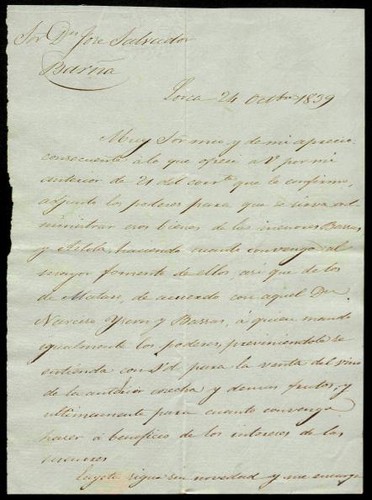 Sor Dn Jose Salvador
Barna
Lorca 24 Octbre 1839
Muy Sor mio y de mi aprecio:
consecuente à lo que ofreci a V por mi
anterior de 21 del corrte que le confirmo,
adjunto los poderes para que se sirva ad-
ministrar esos bienes de las menores Barras
y haciendo cuanto convenga al
mayor fomento de ellos, asi que de los
de Mataro, de acuerdo con aquel Dn
Narciso y Barras, á quien mando
igualmente los poderes, previniendole se
entienda con Vd para la venta del vino
de la anterior cosecha y demas frutos, y
ultimamente para cuanto convenga
hacer à beneficio de los intereses de las
menores
sigue sin novedad y me encarga